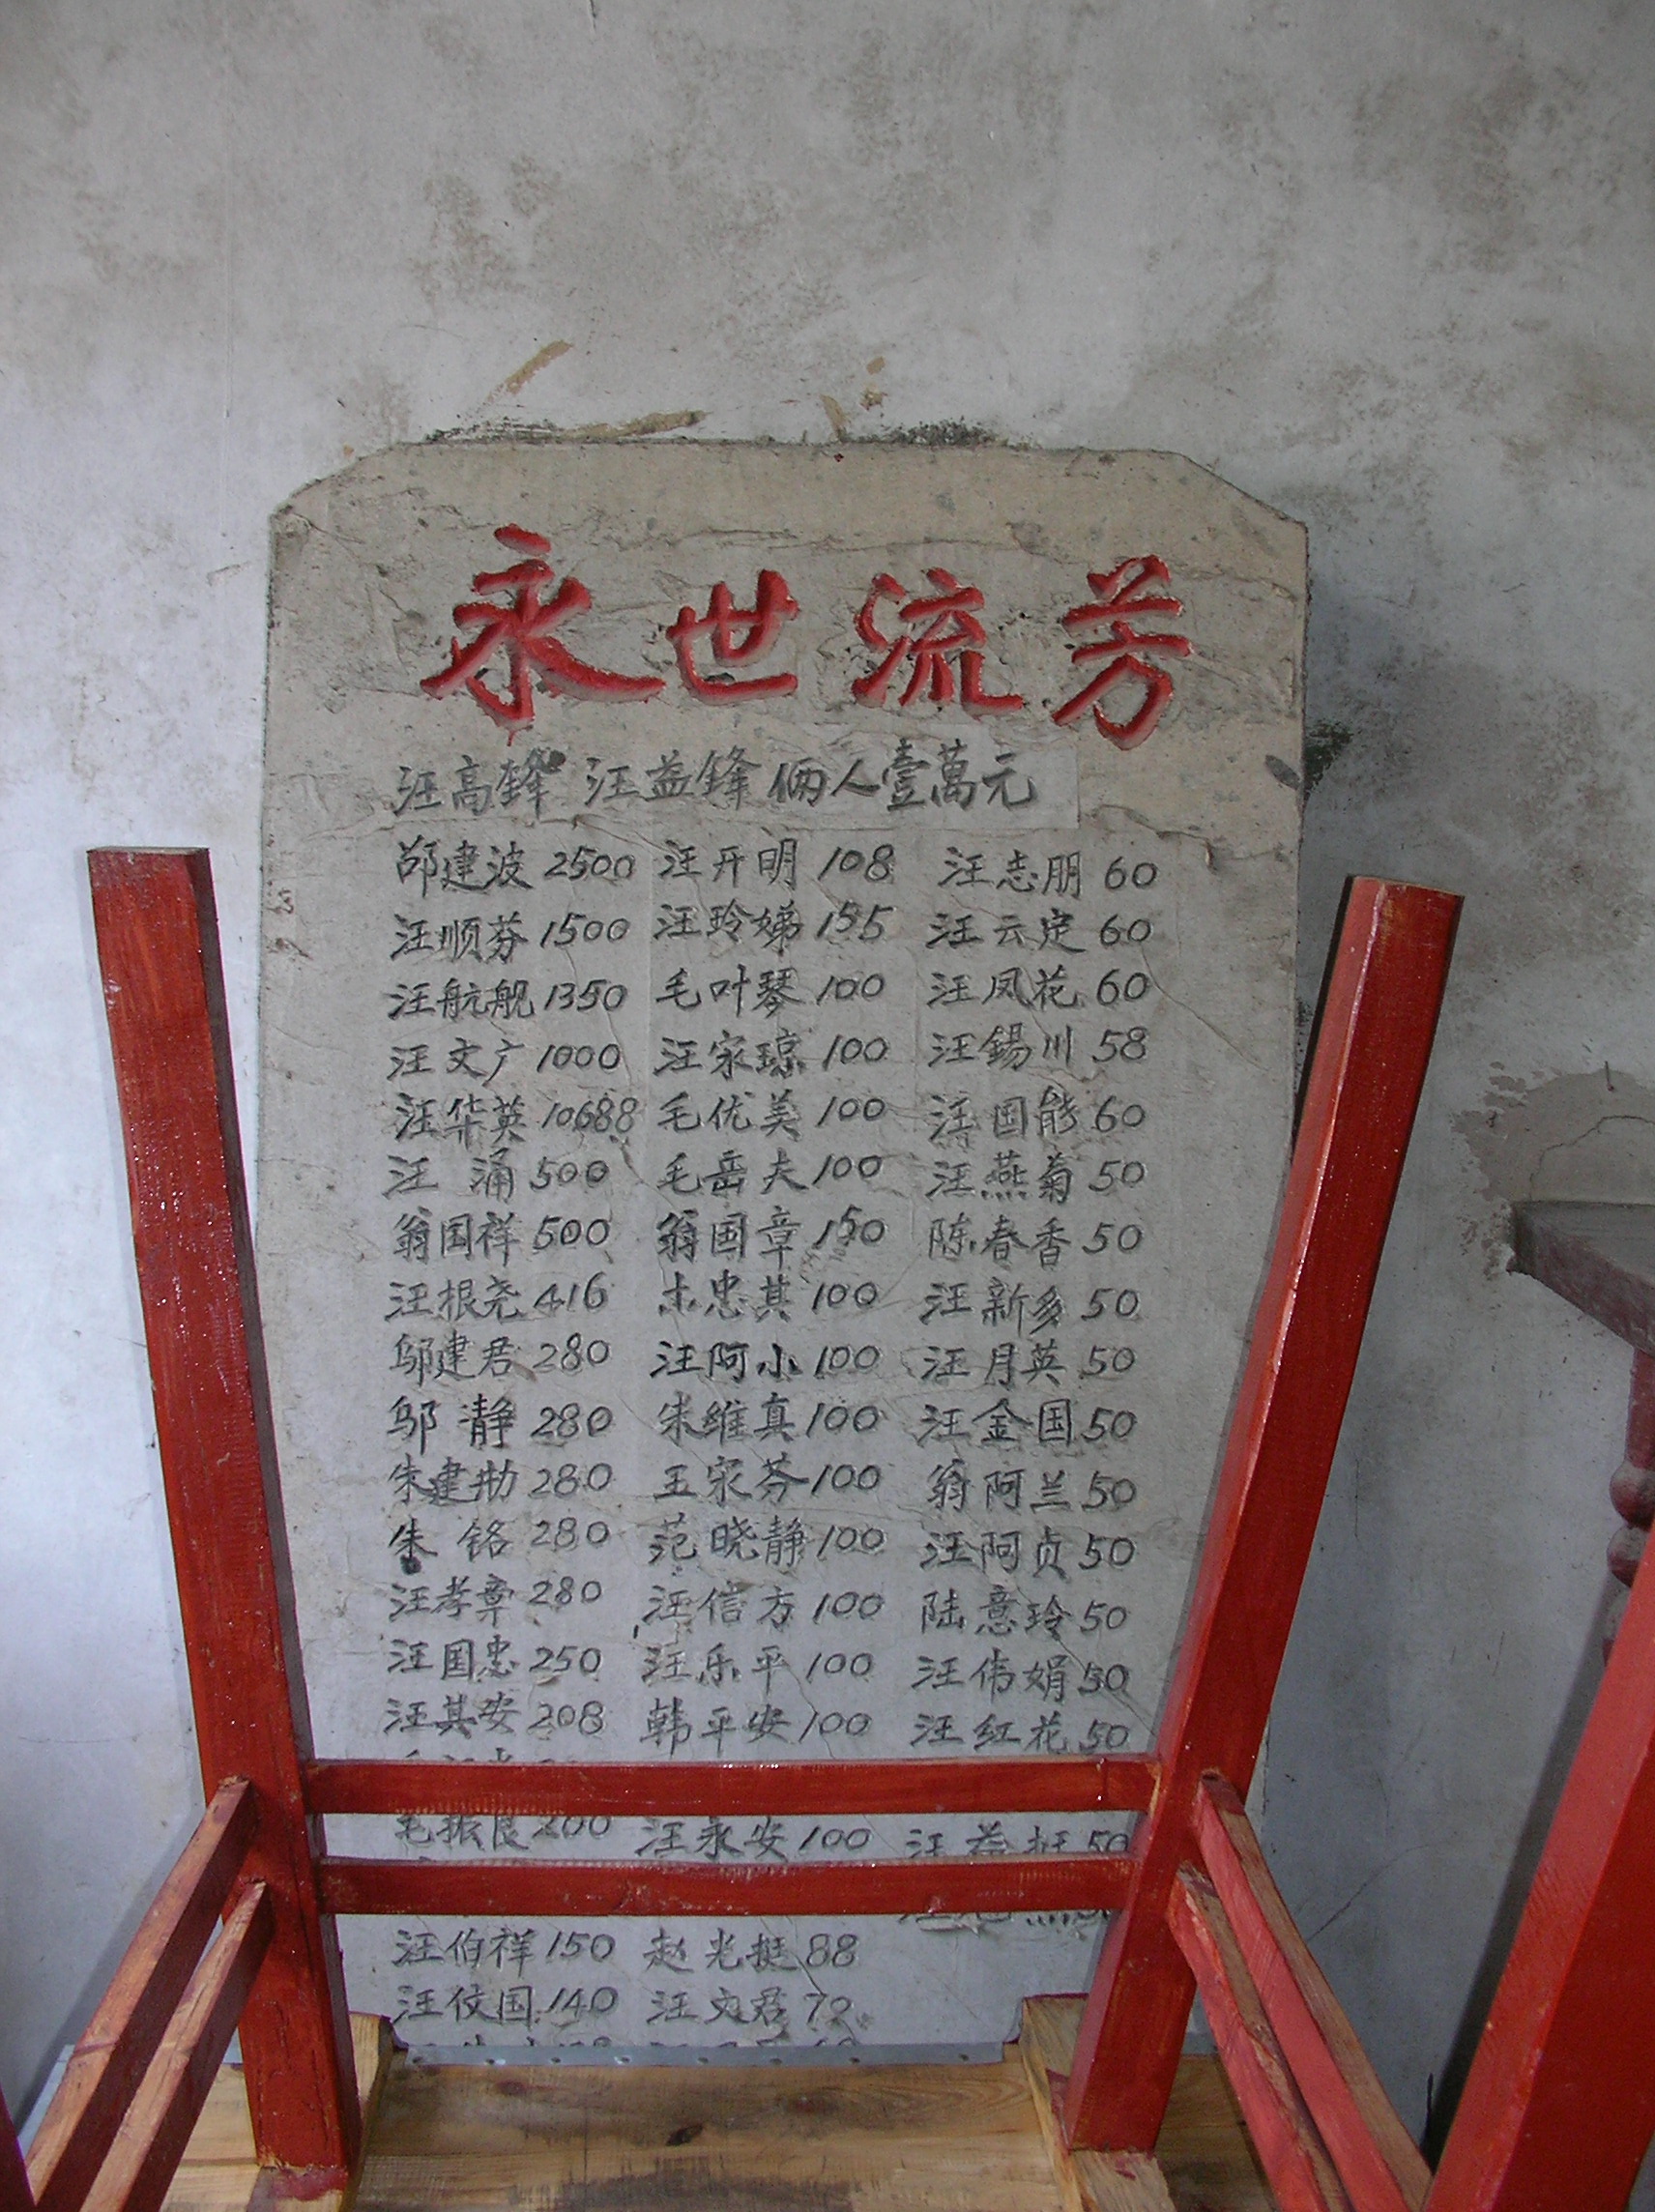 永世流芳
汪高锋 汪益锋 俩人壹萬元
邵建波 2500 汪开明 108 汪志朋 60
汪顺芬 1500 汪玲娣 155 汪云定 60
汪航舰 1350 毛叶琴 100 汪凤花 60
汪文广 1000 汪家琼 100 汪錫川 58
汪华英 10688 毛优美 100 汪国能 60
汪涌 500 毛岳夫 100 汪燕菊 50
翁国祥 500 翁国章 150 陈春香 50
汪根尧 416 忠其 100 汪新多 50
邬建君 280 汪阿小 100 汪月英 50
邬静 280 朱维真 100 汪金国 50
朱建勋 280 王宋芬 100 翁阿兰 50
朱铭 280 范晓静 100 汪阿贞 50
汪孝章 280 汪信方 100 陆意玲 50
汪国忠 250 汪乐平 100 汪伟娟 50
汪其安 208 韩平安 100 汪红花 50
毛振良 200 汪永安 100 汪益挺 50
汪伯祥 150 赵光挺 88
汪仪国 140 汪文君 70